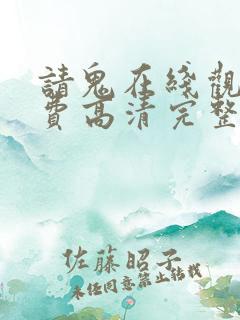 請鬼在綫觀
費高清完整
佐藤昭子
未任同意禁止转载